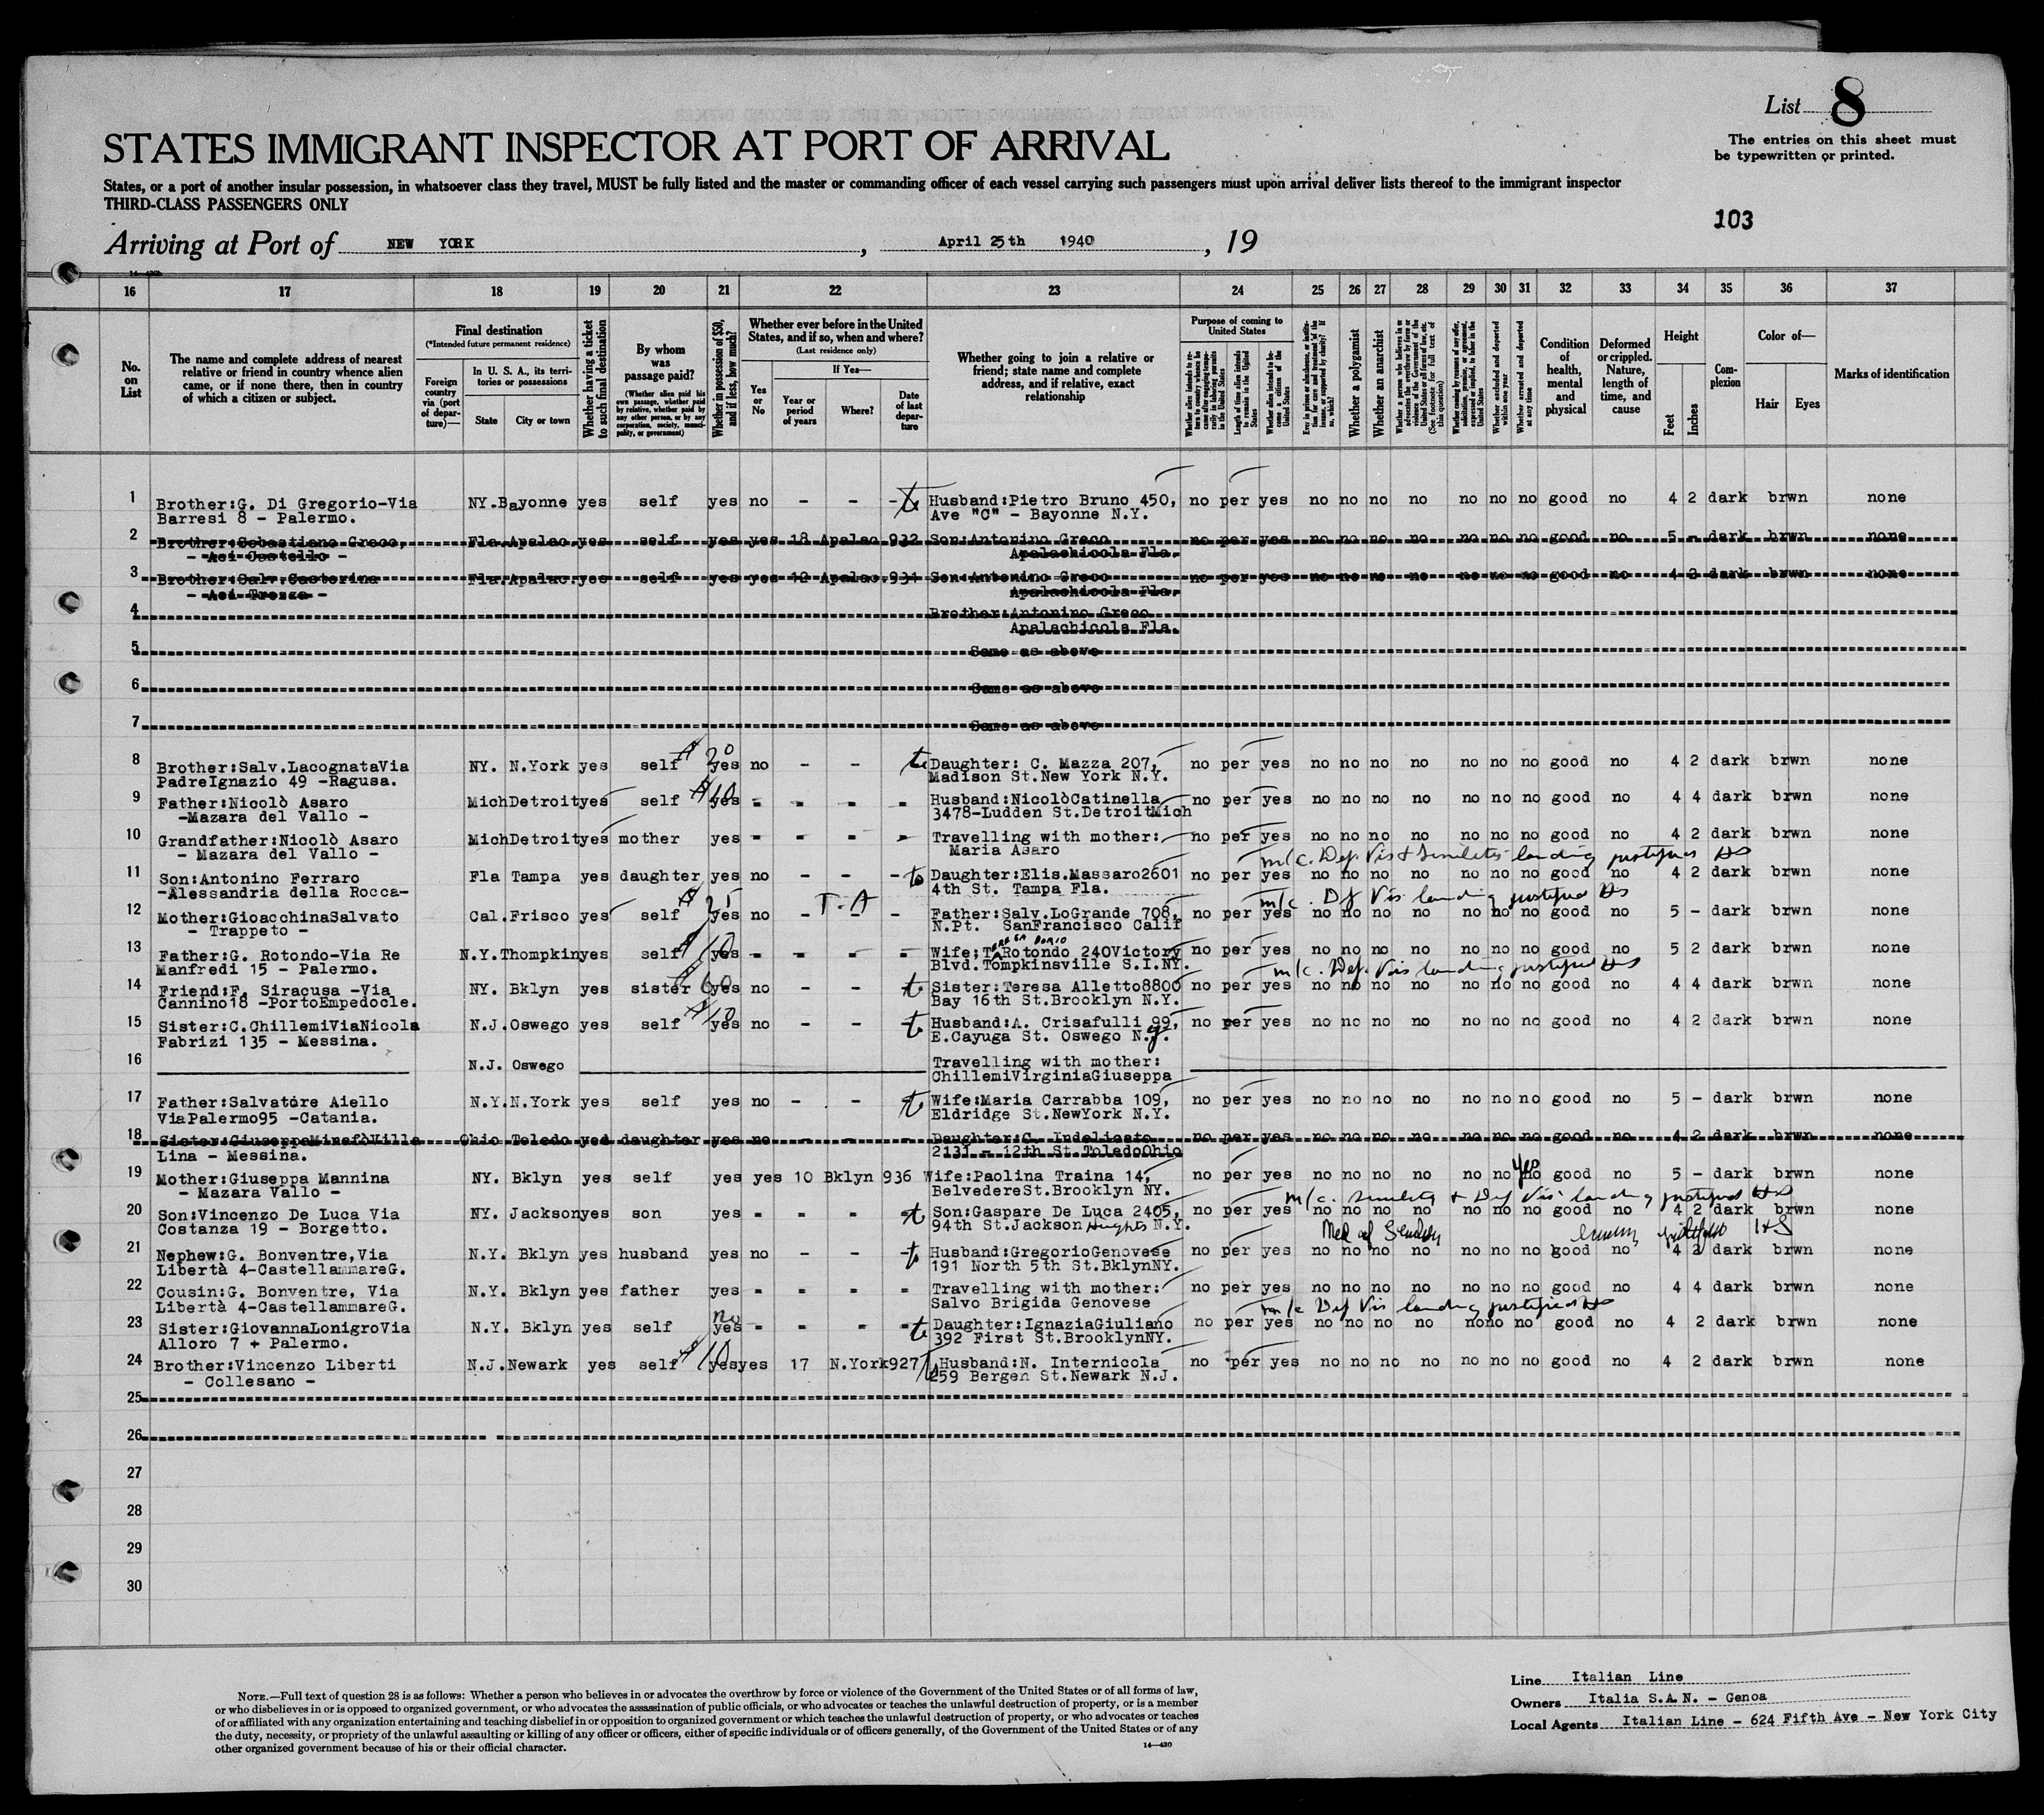 List 8
The entries on this sheet must
be typewritten or printed.
STATES IMMIGRANT INSPECTOR AT PORT OF ARRIVAL
States, or a port of another insular possession, in whatsoever class they travel, MUST be fully listed and the master or commanding officer of each vessel carrying such passengers must upon arrival deliver lists thereof to the immigrant inspector
THIRD-CLASS PASSENGERS ONLY
103
Arriving at Port of NEW YORK, April 25th 1940, 19
16 17 18 19 20 21 22 23 24 25 26 27 28 29 30 31 32 33 34 35 36 37
No. on List
The name and complete address of nearest relative or friend in country whence alien came, or if none there, then in country of which a citizen or subject.
Final destination
(*Intended future permanent residence)
Foreign country via (port of departure)—
In U. S. A., its territories or possessions
State
City or town
Whether having a ticket to such final destination
By whom was passage paid?
(Whether alien paid his own passage, whether paid by relative, whether paid by any other person, or by any corporation, society, municipality, or government)
Whether in possession of $50, and if less, how much?
Whether ever before in the United States, and if so, when and where?
(Last residence only)
Yes or No
If Yes—
Year or period of years
Where?
Date of last departure
Whether going to join a relative or friend; state name and complete address, and if relative, exact relationship
Purpose of coming to United States
Whether alien intends to return to country whence he came after engaging temporarily in laboring pursuits in the United States
Length of time alien intends to remain in the United States
Whether alien intends to become a citizen of the United States
Whether a polygamist
Whether an anarchist
Whether excluded and deported within one year
Whether arrested and deported at any time
Condition of health, mental and physical
Deformed or crippled. Nature, length of time, and cause
Height
Feet
Inches
Complexion
Color of—
Hair
Eyes
Marks of identification
1 Brother:G. Di Gregorio-Via NY. Bayonne yes self yes no - - - Husband:Pietro Bruno 450, no per yes no no no no no no no good no 4 2 dark brwn none
Barresi 8 - Palermo. Ave "C" - Bayonne N.Y.
2 Brother:Sebastiano Greco, Fla.Apalac.yes self yes yes 18 Apalac 932 Son:Antonino Greco no per yes no no no no no no no good no 5 - dark brwn none
- Aci Castello - Apalachicola Fla.
3 Brother:Salv.Casterina Fla.Apalac.yes self yes yes 12 Apalac.931 Son:Antonino Greco no per yes no no no no no no no good no 4 2 dark brwn none
- Aci Trezza - Apalachicola Fla.
4 Brother:Antonino Greco
Apalachicola Fla.
5 Same as above
6 Same as above
7 Same as above
8 Brother:Salv.LacognataVia NY. N.York yes self 20 yes no - - Daughter: C. Mazza 207, no per yes no no no no no no no good no 4 2 dark brwn none
PadreIgnazio 49 -Ragusa. Madison St.New York N.Y.
9 Father:Nicolò Asaro MichDetroityes self 10 yes - - - - Husband:NicolòCatinella no per yes no no no no no no no good no 4 4 dark brwn none
-Mazara del Vallo - 3478-Ludden St.DetroitMich
10 Grandfather:Nicolò Asaro MichDetroityes mother yes - - - - Travelling with mother: no per yes no no no no no no no good no 4 2 dark brwn none
- Mazara del Vallo - Maria Asaro
m/c. Def. Vis & Senility landing justified
11 Son:Antonino Ferraro Fla Tampa yes daughter yes no - - - Daughter:Elis.Massaro2601 no per yes no no no no no no no good no 4 2 dark brwn none
-Alessandria della Rocca- 4th St. Tampa Fla.
m/c. Df Vis landing justified
12 Mother:GioacchinaSalvato Cal.Frisco yes self 25 yes no - T.A - - Father:Salv.LoGrande 708, no per yes no no no no no no no good no 5 - dark brwn none
- Trappeto - N.Pt. SanFrancisco Calif
13 Father:G. Rotondo-Via Re N.Y.Thompkinyes self 10 yes - - - - Wife;T.Rotondo 240Victory no per yes no no no no no no no good no 5 2 dark brwn none
Manfredi 15 - Palermo. Blvd. Tompkinsville S.I.NY.
m/c. Def. Vis landing justified
14 Friend:F. Siracusa -Via NY. Bklyn yes sister 60 yes no - - Sister:Teresa Alletto8800 no per yes no no no no no no no good no 4 4 dark brwn none
Cannino18 -PortoEmpedocle. Bay 16th St.Brooklyn N.Y.
15 Sister:C.ChillemiViaNicola N.J.Oswego yes self 10 yes no - - Husband:A. Crisafulli 99, no per yes no no no no no no no good no 4 2 dark brwn none
Fabrizi 135 - Messina. E.Cayuga St. Oswego N.y.
16 N.J. Oswego Travelling with mother:
ChillemiVirginiaGiuseppa
17 Father:Salvatore Aiello N.Y.N.York yes self yes no - - Wife:Maria Carrabba 109, no per yes no no no no no no no good no 5 - dark brwn none
ViaPalermo95 -Catania. Eldridge St.NewYork N.Y.
18 Sister:GiuseppaMinafòVilla Ohio Toledo yes daughter yes no - - - Daughter:C. Indelicato no per yes no no no no no no no good no 4 2 dark brwn none
Lina - Messina. 2131 - 12th St.ToledoOhio
19 Mother:Giuseppa Mannina NY. Bklyn yes self yes yes 10 Bklyn 936 Wife:Paolina Traina 14, no per yes no no no no no no yes no good no 5 - dark brwn none
- Mazara Vallo - BelvedereSt.Brooklyn NY.
m/c. Senility & Def Vis landing justified
20 Son:Vincenzo De Luca Via NY. Jacksonyes son yes - - - Son:Gaspare De Luca 2405, no per yes no no no no no no no good no 4 2 dark brwn none
Costanza 19 - Borgetto. 94th St.Jackson Heights N.Y.
21 Nephew:G. Bonventre,Via N.Y. Bklyn yes husband yes no - - - Husband:GregorioGenovese no per yes no no no no no no no good no 4 2 dark brwn none
Libertà 4-CastellammareG. 191 North 5th St.BklynNY.
22 Cousin:G. Bonventre, Via N.Y. Bklyn yes father yes - - - - Travelling with mother: no per yes no no no no no no no good no 4 4 dark brwn none
Libertà 4-CastellammareG. Salvo Brigida Genovese
m/c Def Vis landing justified
23 Sister:GiovannaLonigroVia N.Y. Bklyn yes self no yes - - - - Daughter:IgnaziaGiuliano no per yes no no no no no no no good no 4 2 dark brwn none
Alloro 7 + Palermo. 392 First St.BrooklynNY.
24 Brother:Vincenzo Liberti N.J.Newark yes self 10 yes yes 17 N.York927 Husband:N. Internicola no per yes no no no no no no no good no 4 2 dark brwn none
- Collesano - 259 Bergen St.Newark N.J.
25
26
27
28
29
30
Line Italian Line
Owners Italia S.A.N. - Genoa
Local Agents Italian Line - 624 Fifth Ave - New York City
NOTE.—Full text of question 28 is as follows: Whether a person who believes in or advocates the overthrow by force or violence of the Government of the United States or of all forms of law,
or who disbelieves in or is opposed to organized government, or who advocates the assassination of public officials, or who advocates or teaches the unlawful destruction of property, or is a member
of or affiliated with any organization entertaining and teaching disbelief in or opposition to organized government or which teaches the unlawful destruction of property, or who advocates or teaches
the duty, necessity, or propriety of the unlawful assaulting or killing of any officer or officers, either of specific individuals or of officers generally, of the Government of the United States or of any
other organized government because of his or their official character.
14—430